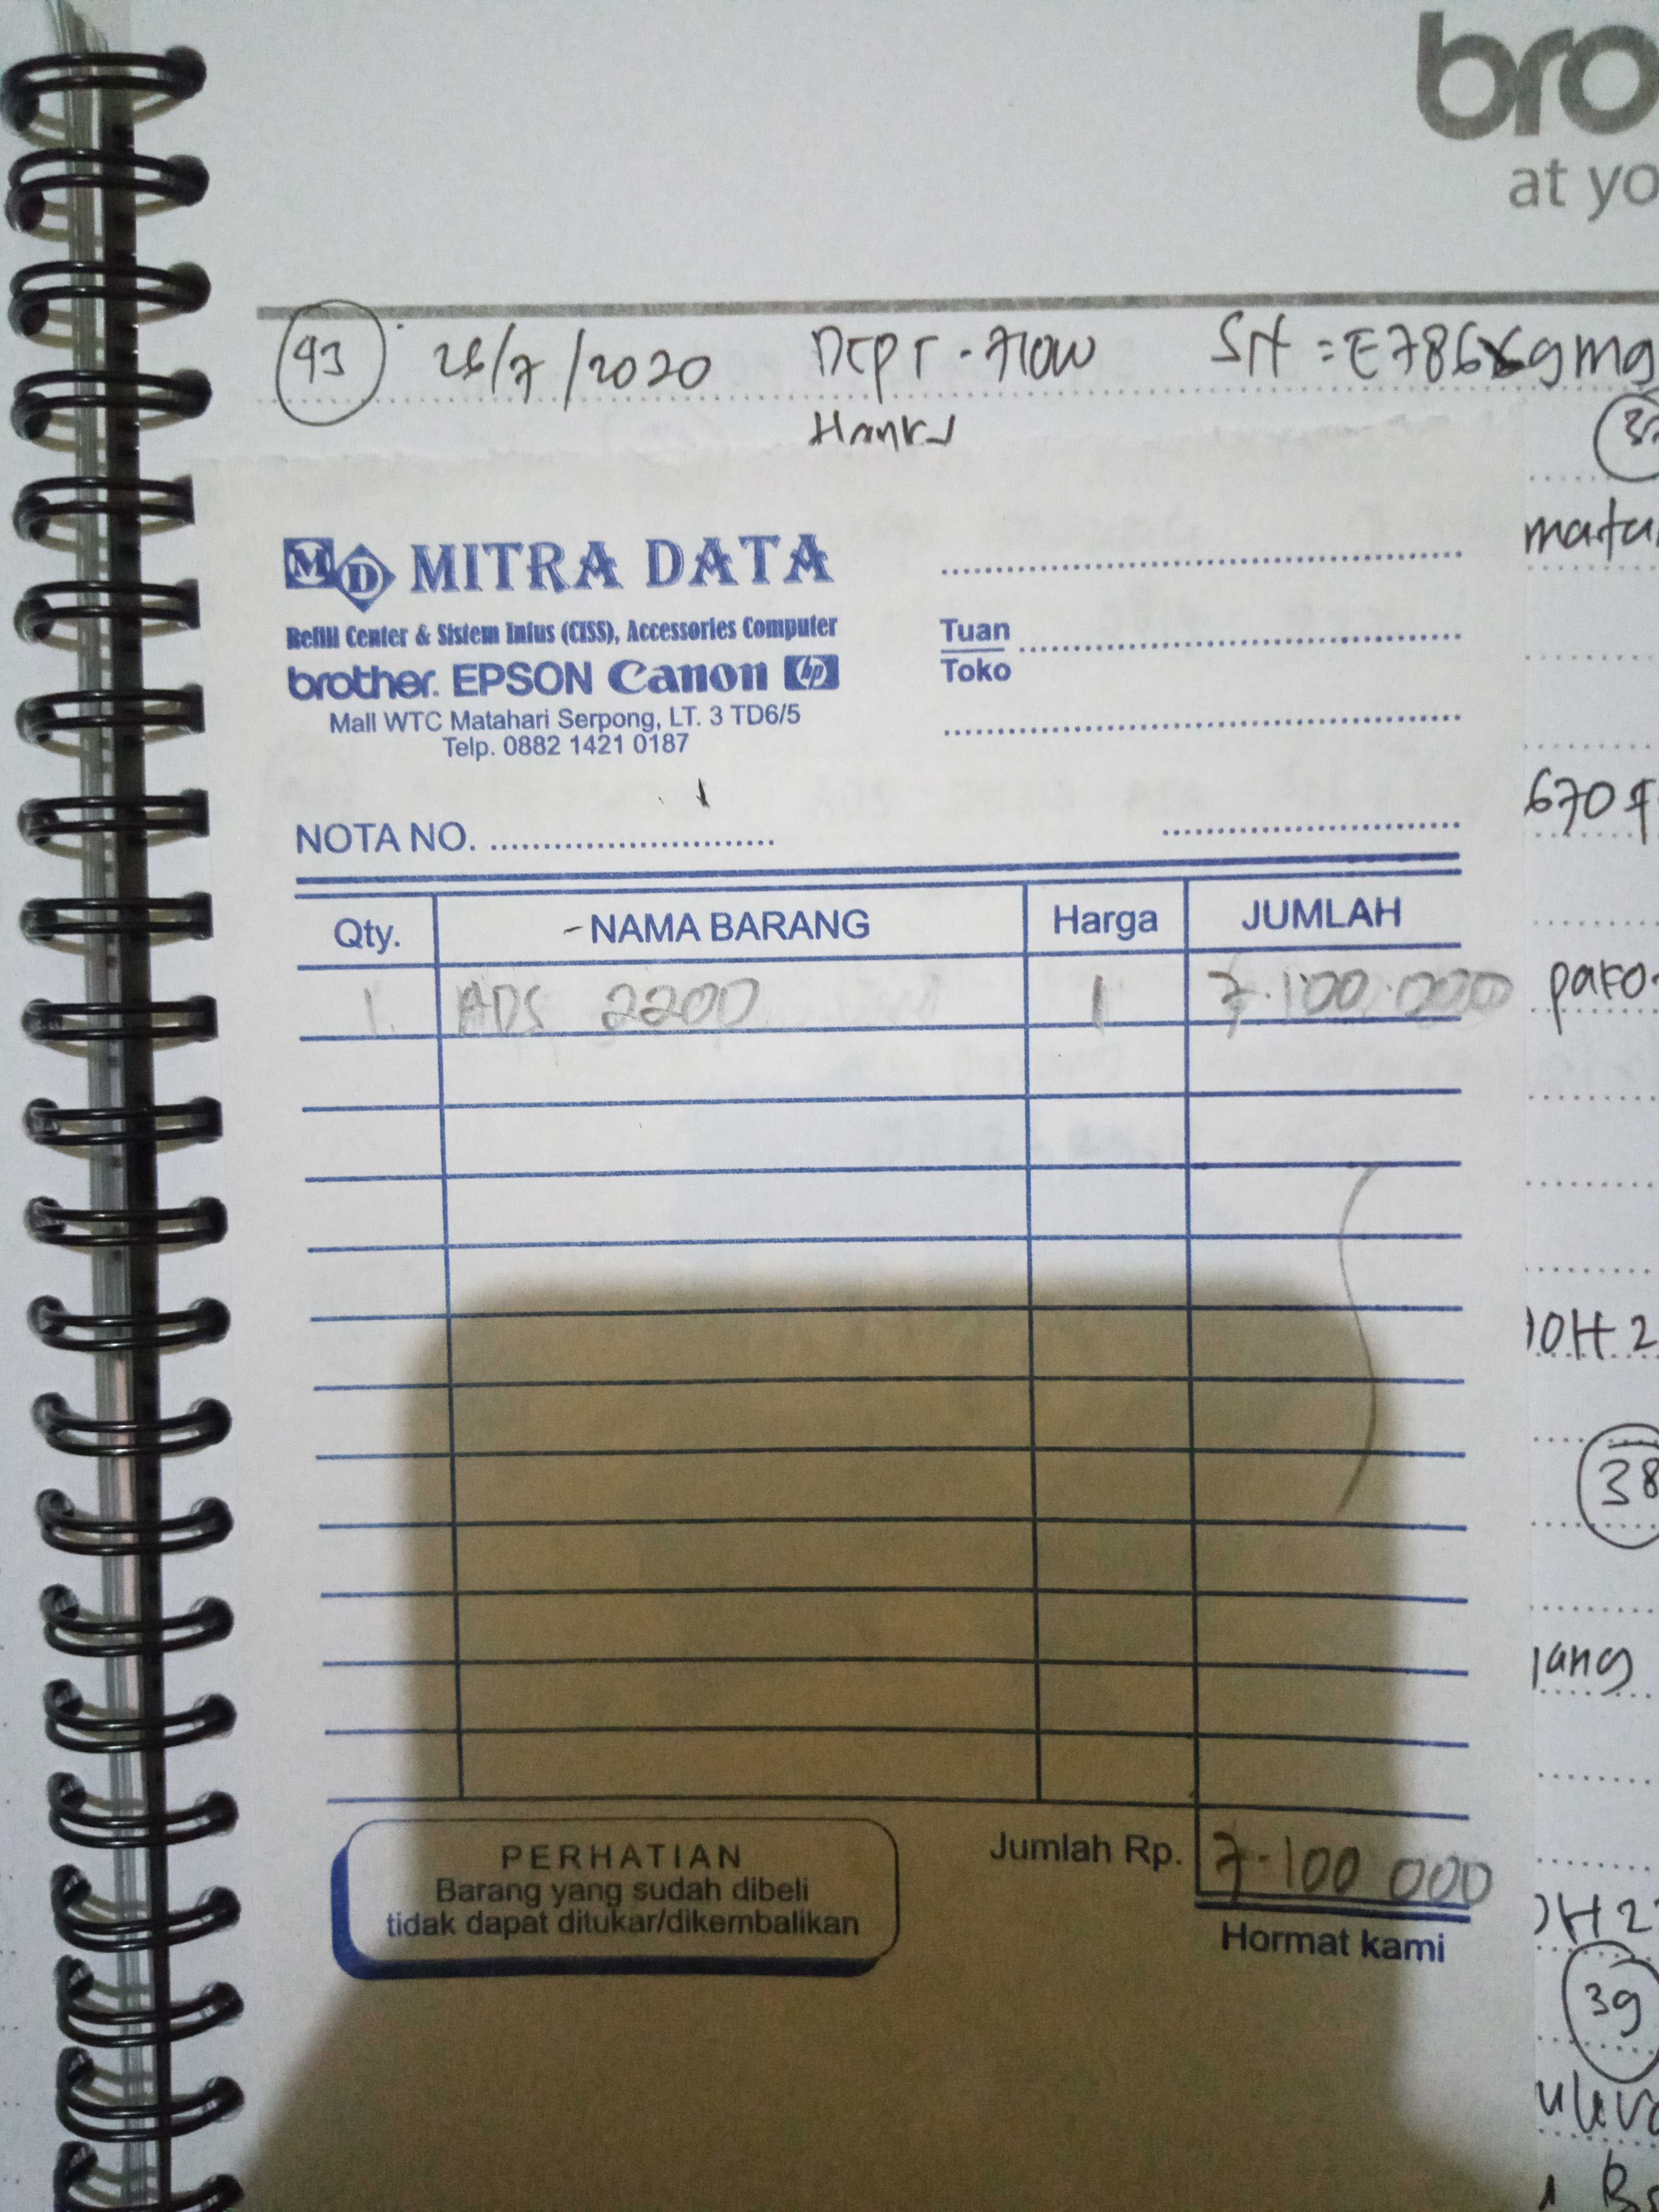 bro
at yo
93 26/7/2020 DEPT - FLOW SN = E786
MD MITRA DATA
Refill Center & Sistem Infus (CISS), Accessories Computer
brother. EPSON Canon hp
Mall WTC Matahari Serpong, LT. 3 TD6/5
Telp. 0882 1421 0187
Tuan
Toko
NOTA NO.
Qty. NAMA BARANG Harga JUMLAH
1. ADS 2200 1 7.100.000
PERHATIAN
Barang yang sudah dibeli
tidak dapat ditukar/dikembalikan
Jumlah Rp. 7.100 000
Hormat kami
670
38
39